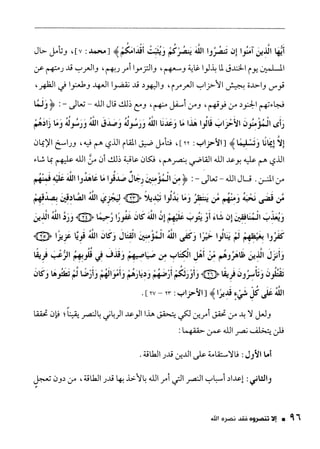 أَيُّهَا الَّذِينَ آمَنُوا إِن تَنصُرُوا اللَّهَ يَنصُرْكُمْ وَيُثَبِّتْ أَقْدَامَكُمْ﴾ [محمد: ٧]، وتأمل حال
المسلمين يوم الخندق لما بذلوا غاية وسعهم، والتزموا أمر ربهم، والعرب قد رمتهم عن
قوس واحدة بجيش الأحزاب العرمرم، واليهود قد نقضوا العهد وطعنوا في الظهر،
فجاءتهم الجنود من فوقهم، ومن أسفل منهم، ومع ذلك قال الله - تعالى -: ﴿وَلَمَّا
رَأَى الْمُؤْمِنُونَ الْأَحْزَابَ قَالُوا هَذَا مَا وَعَدَنَا اللَّهُ وَرَسُولُهُ وَصَدَقَ اللَّهُ وَرَسُولُهُ وَمَا زَادَهُمْ
إِلَّا إِيمَانًا وَتَسْلِيمًا﴾ [الأحزاب: ٢٢]، فتأمل ضيق المقام الذي هم فيه، وراسخ الإيمان
الذي هم عليه بوعد الله القاضي بنصرهم، فكان عاقبة ذلك أن منَّ الله عليهم بما شاء
من المنن. قال الله - تعالى -: ﴿مِنَ الْمُؤْمِنِينَ رِجَالٌ صَدَقُوا مَا عَاهَدُوا اللَّهَ عَلَيْهِ فَمِنْهُم
مَّن قَضَى نَحْبَهُ وَمِنْهُم مَّن يَنتَظِرُ وَمَا بَدَّلُوا تَبْدِيلًا ﴿٢٣﴾ لِيَجْزِيَ اللَّهُ الصَّادِقِينَ بِصِدْقِهِمْ
وَيُعَذِّبَ الْمُنَافِقِينَ إِن شَاءَ أَوْ يَتُوبَ عَلَيْهِمْ إِنَّ اللَّهَ كَانَ غَفُورًا رَّحِيمًا ﴿٢٤﴾ وَرَدَّ اللَّهُ الَّذِينَ
كَفَرُوا بِغَيْظِهِمْ لَمْ يَنَالُوا خَيْرًا وَكَفَى اللَّهُ الْمُؤْمِنِينَ الْقِتَالَ وَكَانَ اللَّهُ قَوِيًّا عَزِيزًا ﴿٢٥﴾
وَأَنزَلَ الَّذِينَ ظَاهَرُوهُم مِّنْ أَهْلِ الْكِتَابِ مِن صَيَاصِيهِمْ وَقَذَفَ فِي قُلُوبِهِمُ الرُّعْبَ فَرِيقًا
تَقْتُلُونَ وَتَأْسِرُونَ فَرِيقًا ﴿٢٦﴾ وَأَوْرَثَكُمْ أَرْضَهُمْ وَدِيَارَهُمْ وَأَمْوَالَهُمْ وَأَرْضًا لَّمْ تَطَئُوهَا وَكَانَ
اللَّهُ عَلَى كُلِّ شَيْءٍ قَدِيرًا﴾ [الأحزاب: ٢٣ - ٢٧].
ولعل لا بد من تحقق أمرين لكي يتحقق هذا الوعد الرباني بالنصر يقيناً؛ فإن تحققا
فلن يتخلف نصر الله عمن حققهما:
أما الأول: فالاستقامة على الدين قدر الطاقة.
والثاني: إعداد أسباب النصر التي أمر الله بالأخذ بها قدر الطاقة، من دون تعجل
٩٦ ■ إلا تنصروه فقد نصره الله